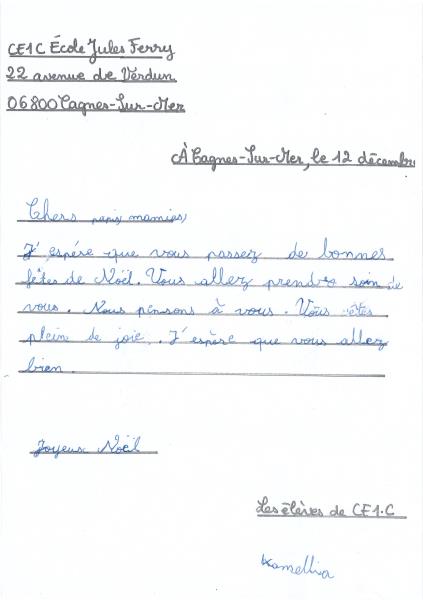 CE1C École Jules Ferry
22 avenue de Verdun
06800 Cagnes-Sur-Mer
À Cagnes-Sur-Mer, le 12 décembre
Chers papis, mamies,
J'espére que vous passez de bonnes
fêtes de Noël. Vous allez prendre soin de
vous. Nous pensons à vous. Vous êtes
plein de joie. J'espère que vous allez
bien
Joyeux Noël
Les élèves de CE1.C
Kamellia